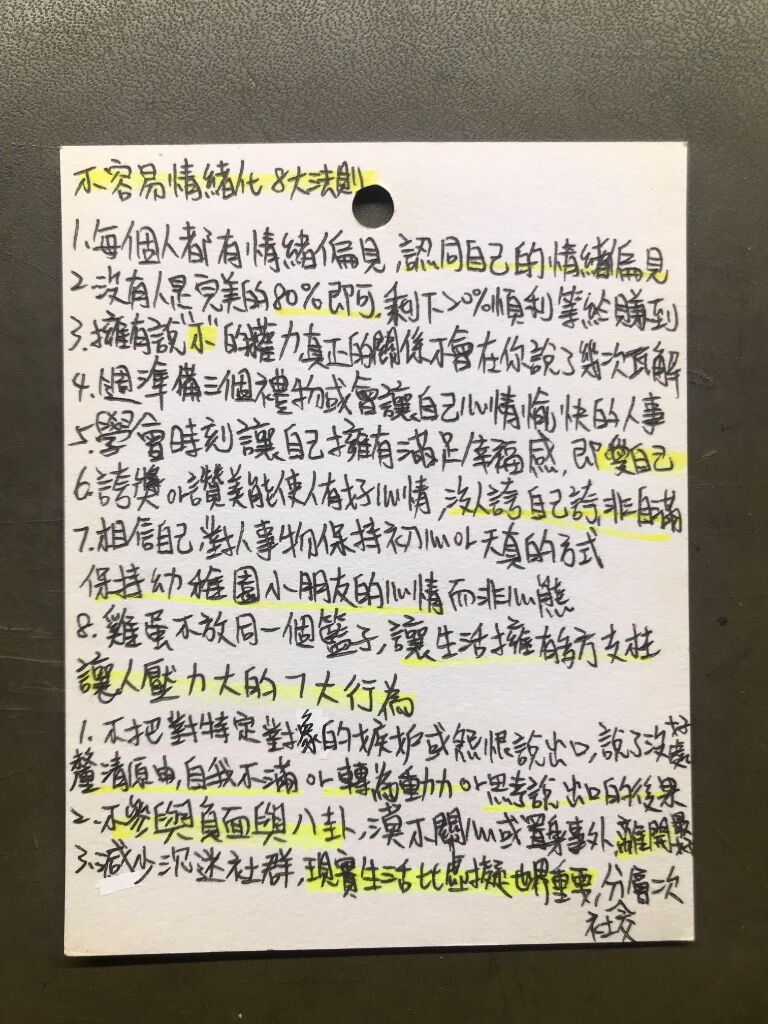 不容易情緒化8大法則
1.每個人都有情緒偏見,認同自己的情緒偏見
2.沒有人是完美的80%即可.剩下20%順利等於賺到
3.擁有說"不"的權力真正的關係不會在你說了幾次瓦解
4.週準備三個禮物或會讓自己心情愉快的人事
5.學會時刻讓自己擁有滿足幸福感,即愛自己
6.誇獎or讚美能使人有好心情,沒人誇自己誇,非自滿
7.相信自己,對人事物保持初心or天真的方式
保持幼稚園小朋友的心情而非心態
8.雞蛋不放同一個籃子,讓生活擁有多方支柱
讓人壓力大的7大行為
1.不把對特定對象的嫉妒或怨恨說出口,說了沒好處
釐清原由,自我不滿or轉為動力or思考說出口的後果
2.不參與負面與八卦,漠不關心或置身事外,離開最
3.減少沉迷社群,現實生活比虛擬世界重要,分層次
社交